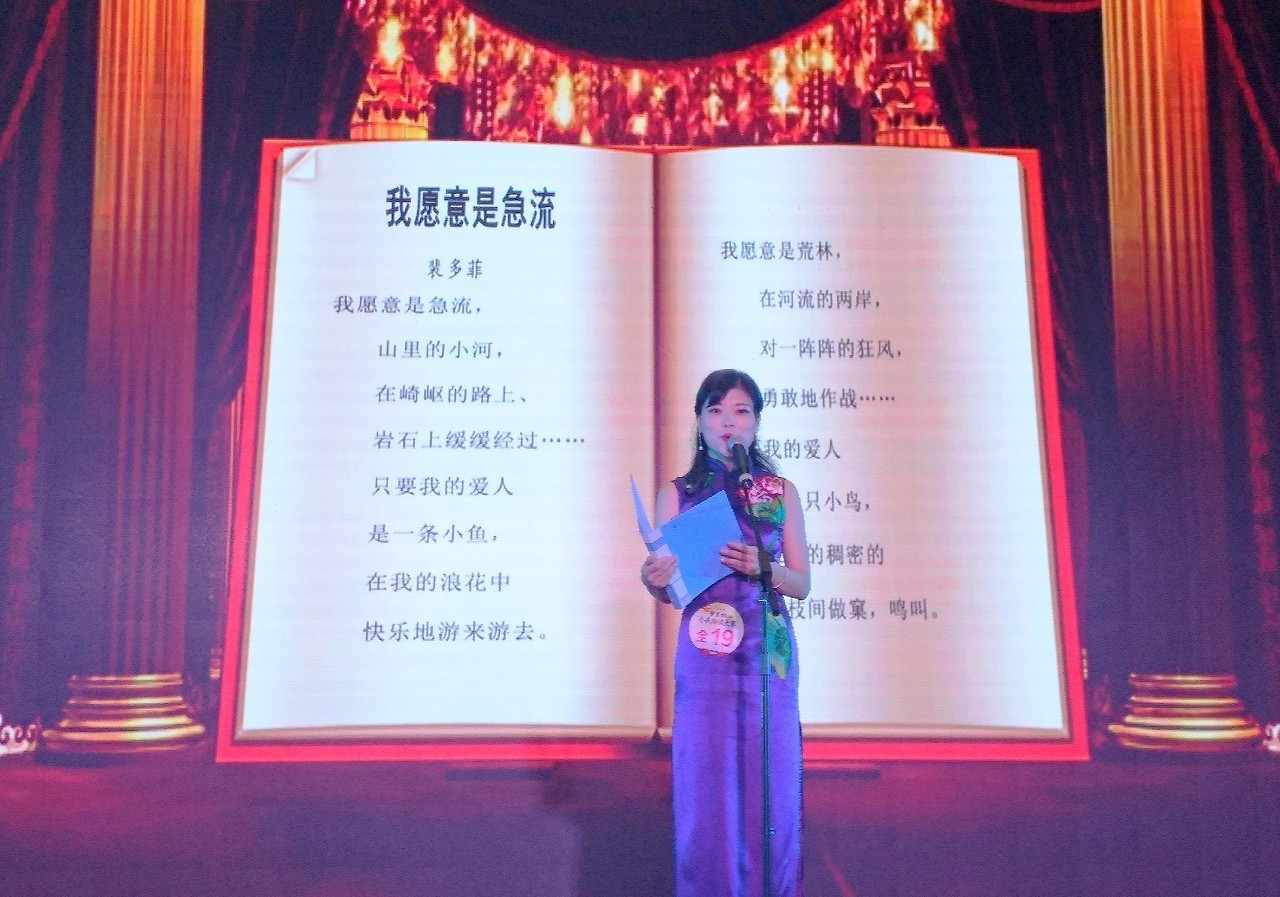 我愿意是急流
裴多菲
我愿意是急流，
山里的小河，
在崎岖的路上、
岩石上缓缓经过……
只要我的爱人
是一条小鱼，
在我的浪花中
快乐地游来游去。
我愿意是荒林，
在河流的两岸，
对一阵阵的狂风，
勇敢地作战……
我的爱人
只小鸟，
的稠密的
枝间做窠，鸣叫。
全19